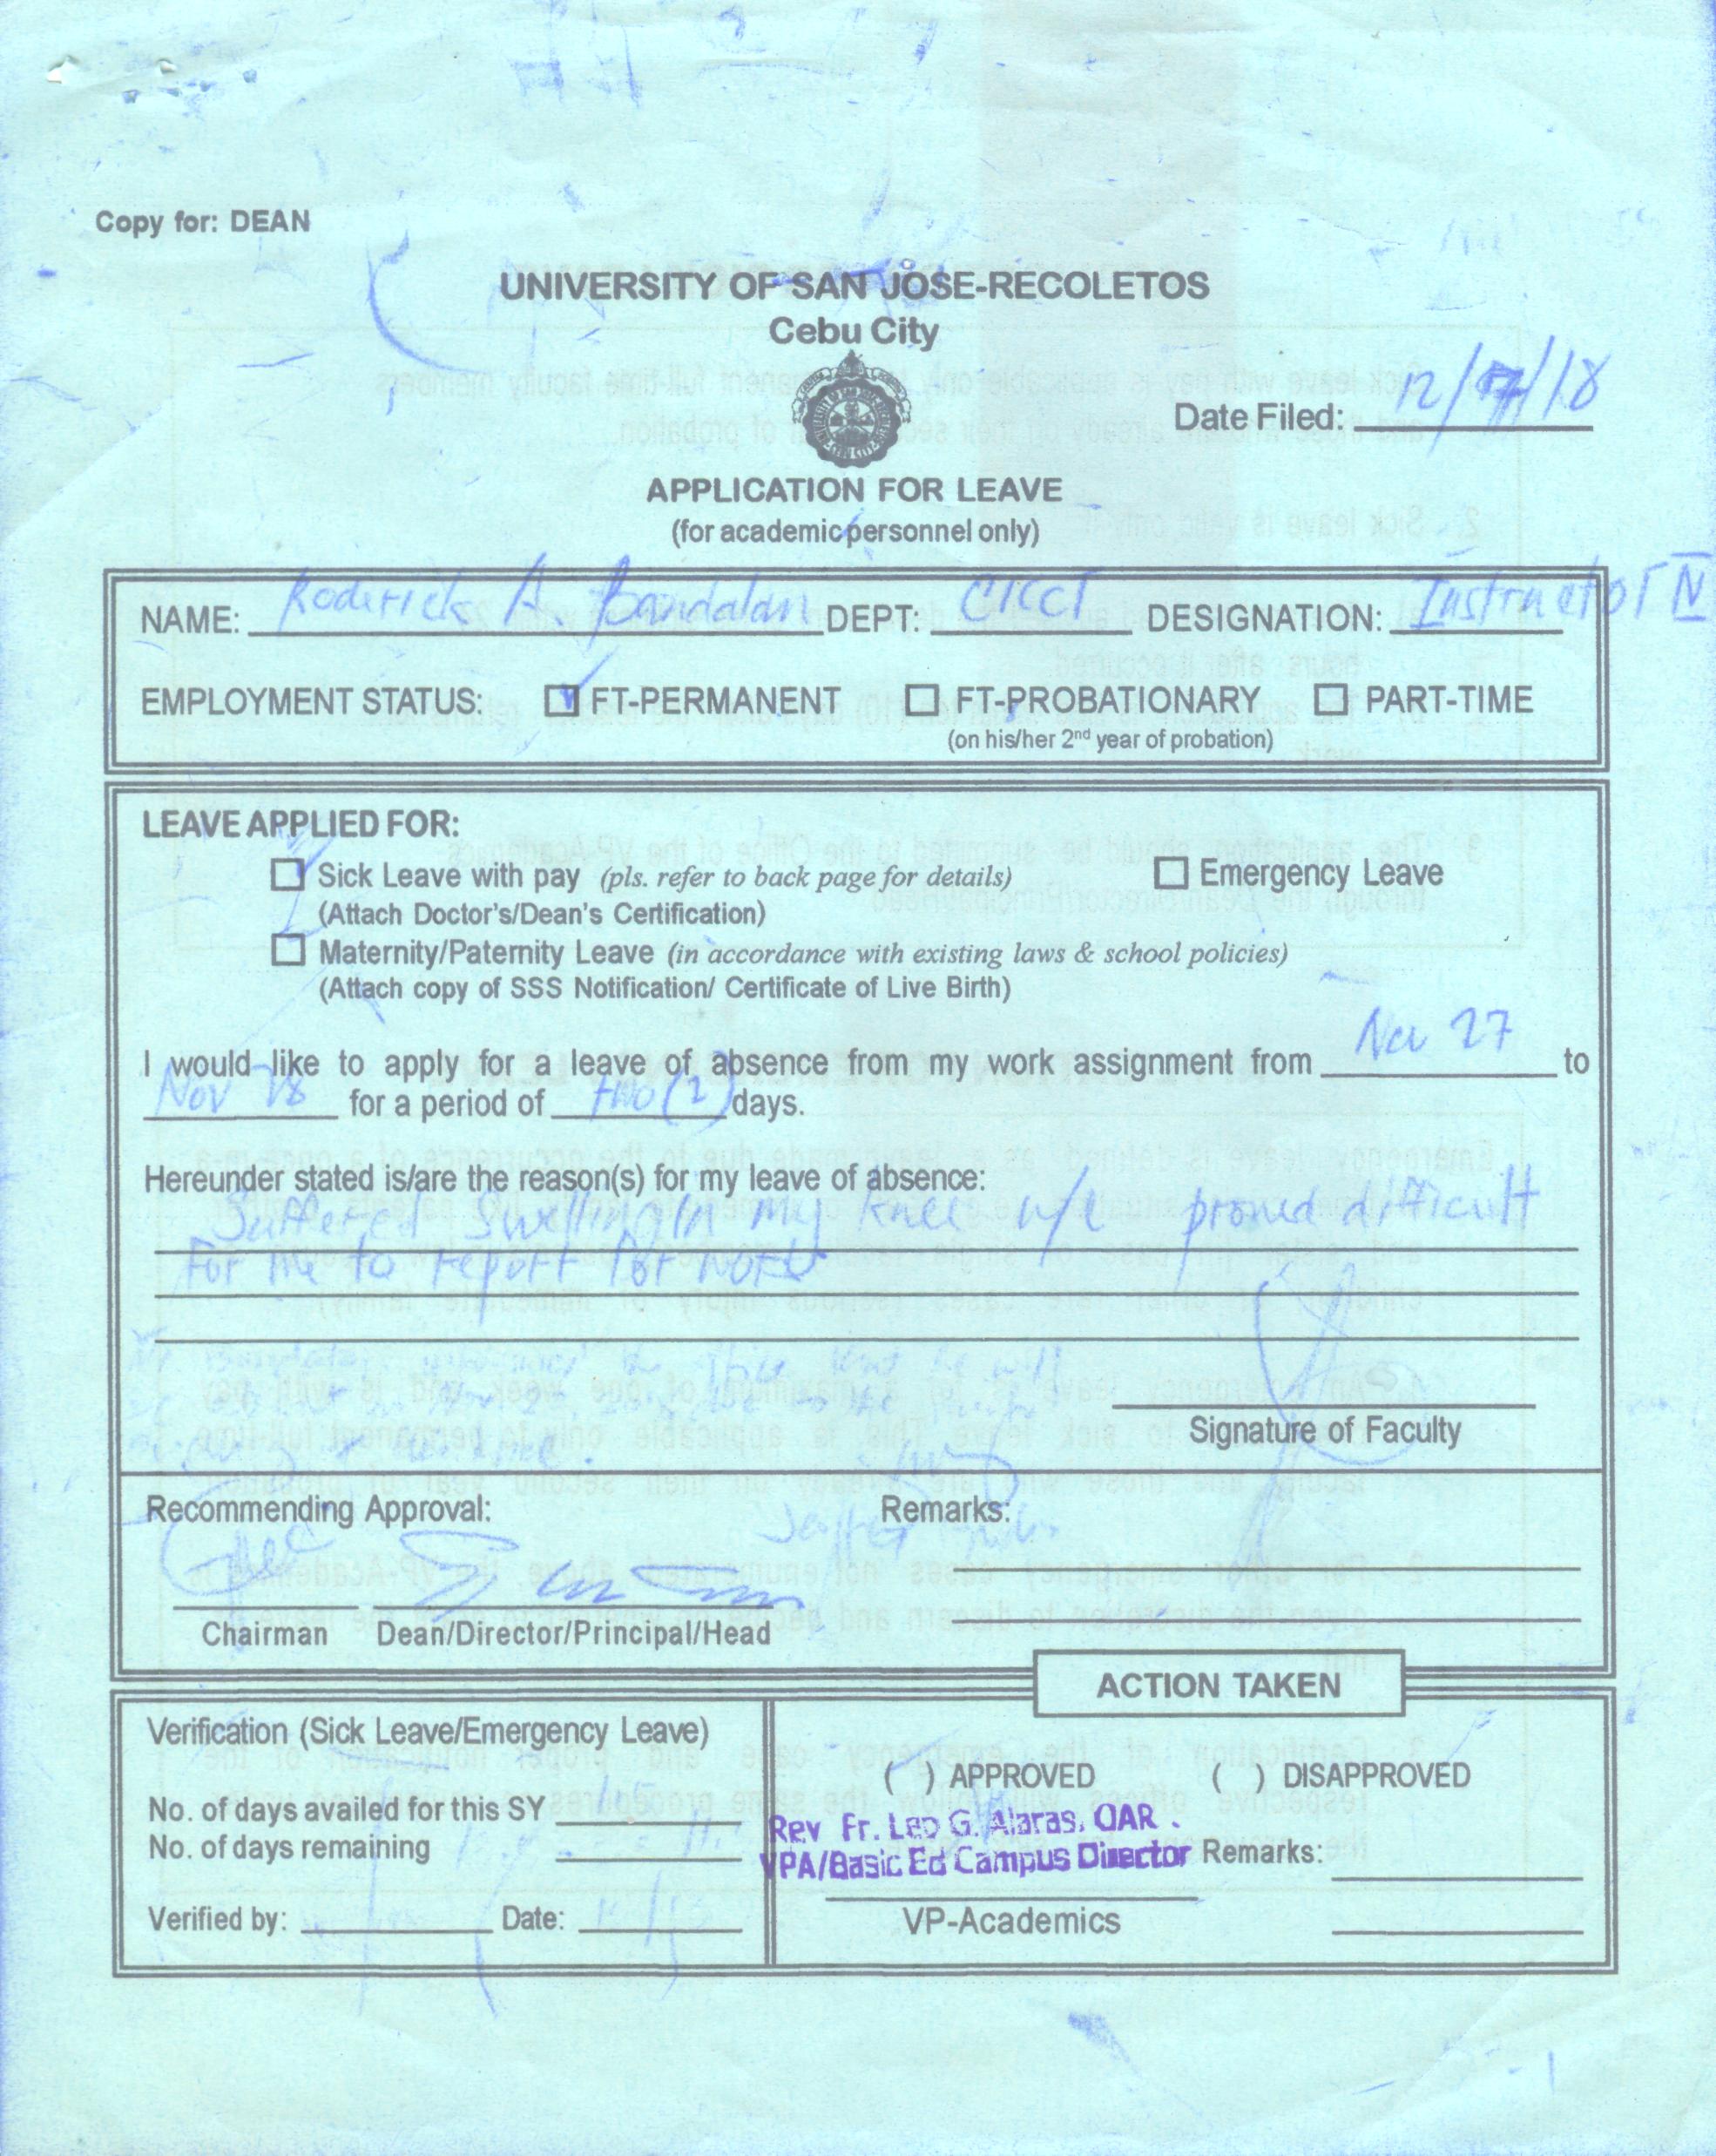 Copy for: DEAN
UNIVERSITY OF SAN JOSE-RECOLETOS
Cebu City
Date Filed: 12/ /18
APPLICATION FOR LEAVE
(for academic personnel only)
NAME: Roderick A. Bandalan DEPT: CICCT DESIGNATION: Instructor IV
EMPLOYMENT STATUS: FT-PERMANENT FT-PROBATIONARY PART-TIME
(on his/her 2nd year of probation)
LEAVE APPLIED FOR:
Sick Leave with pay (pls. refer to back page for details) Emergency Leave
(Attach Doctor's/Dean's Certification)
Maternity/Paternity Leave (in accordance with existing laws & school policies)
(Attach copy of SSS Notification/ Certificate of Live Birth)
I would like to apply for a leave of absence from my work assignment from Nov 27 to
Nov 28 for a period of two (2) days.
Hereunder stated is/are the reason(s) for my leave of absence:
Suffered Swelling in my knee w/c proved difficult
for me to report for work
Signature of Faculty
Recommending Approval: Remarks:
Chairman Dean/Director/Principal/Head
ACTION TAKEN
Verification (Sick Leave/Emergency Leave)
( ) APPROVED ( ) DISAPPROVED
No. of days availed for this SY
Rev Fr. Leo G. Alaras, OAR.
No. of days remaining
VPA/Basic Ed Campus Director Remarks:
Verified by: Date:
VP-Academics